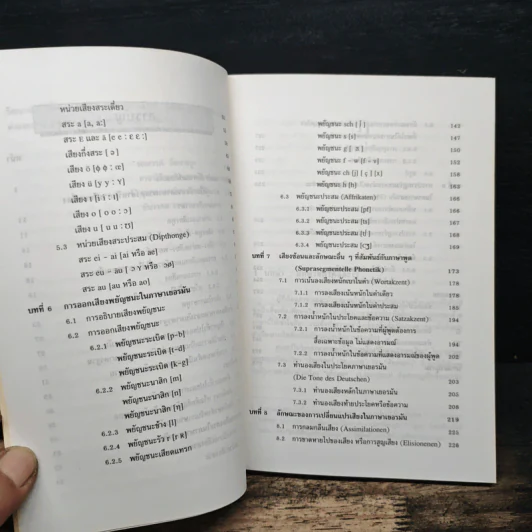 หน่วยเสียงสระเดี่ยว
สระ a [a, a:]
สระ E และ ä [e e : ɛ ɛ :]
เสียงกึ่งสระ [ ə ]
เสียง ö [ɸ ɸ : œ]
เสียง ü [y y : Y]
เสียง i [i i : I]
เสียง o [ o o : ɔ ]
เสียง u [ u u : Ʊ]
5.3 หน่วยเสียงสระประสม (Dipthonge)
สระ ei - ai [ai หรือ ae]
สระ eu - äu [ ɔ Y หรือ ɔø]
สระ au [au หรือ ao]
บทที่ 6 การออกเสียงพยัญชนะในภาษาเยอรมัน
6.1 การอธิบายเสียงพยัญชนะ
6.2 การออกเสียงพยัญชนะ
6.2.1 พยัญชนะระเบิด [p-b]
พยัญชนะระเบิด [t-d]
พยัญชนะระเบิด [k-g]
6.2.2 พยัญชนะนาสิก [m]
พยัญชนะนาสิก [n]
พยัญชนะนาสิก [ŋ]
6.2.3 พยัญชนะข้าง [l]
6.2.4 พยัญชนะรัว r [r ʀ]
6.2.5 พยัญชนะเสียดแทรก
พยัญชนะ sch [ ʃ ] 143
พยัญชนะ s [s] 147
พยัญชนะ g [ ʒ ] 150
พยัญชนะ f - w [f - v] 152
พยัญชนะ ch [j] [ ç ] [x] 156
พยัญชนะ h [h] 162
6.3 พยัญชนะประสม (Affrikaten) 165
6.3.1 พยัญชนะประสม [pf] 165
6.3.2 พยัญชนะประสม [ts] 166
6.3.3 พยัญชนะประสม [tʃ] 168
6.3.4 พยัญชนะประสม [dʒ] 169
บทที่ 7 เสียงซ้อนและลักษณะอื่น ๆ ที่สัมพันธ์กับภาษาพูด
(Suprasegmentelle Phonetik) 173
7.1 การเน้นลงเสียงหนักเบาในคำ (Wortakzent)
7.1.1 การลงเสียงเน้นหนักในคำเดียว
7.1.2 การลงเสียงเน้นหนักในคำประสม
7.2 การลงน้ำหนักในประโยคและข้อความ (Satzakzent)
7.2.1 การลงน้ำหนักในข้อความที่ผู้พูดต้องการ
สื่อเฉพาะข้อมูล ไม่แสดงอารมณ์ 194
7.2.2 การลงน้ำหนักในข้อความที่แสดงอารมณ์ของผู้พูด 202
7.3 ทำนองเสียงในประโยคภาษาเยอรมัน
(Die Töne des Deutschen) 203
7.3.1 ทำนองเสียงหลักในภาษาเยอรมัน 205
7.3.2 ทำนองเสียงท้ายประโยคหรือข้อความ 208
บทที่ 8 ลักษณะของการเปลี่ยนแปรเสียงในภาษาเยอรมัน 219
8.1 การกลมกลืนเสียง (Assimilationen) 225
8.2 การขาดหายไปของเสียง หรือการสูญเสียง (Elisionenen) 226